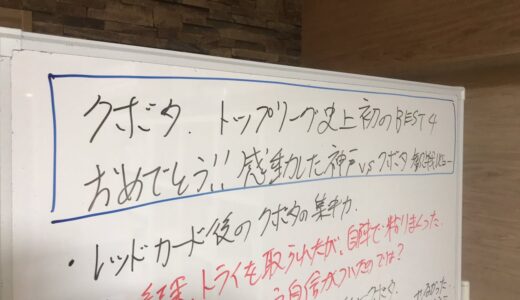 クボタ. トップリーグ史上初のBEST4
おめでとう!! 感動した神戸vsクボタ 観戦レビュー
・レッドカード後のクボタの集中力.
結果、トライを取られたが、自陣で粘りまくった.
自信がついたのでは?